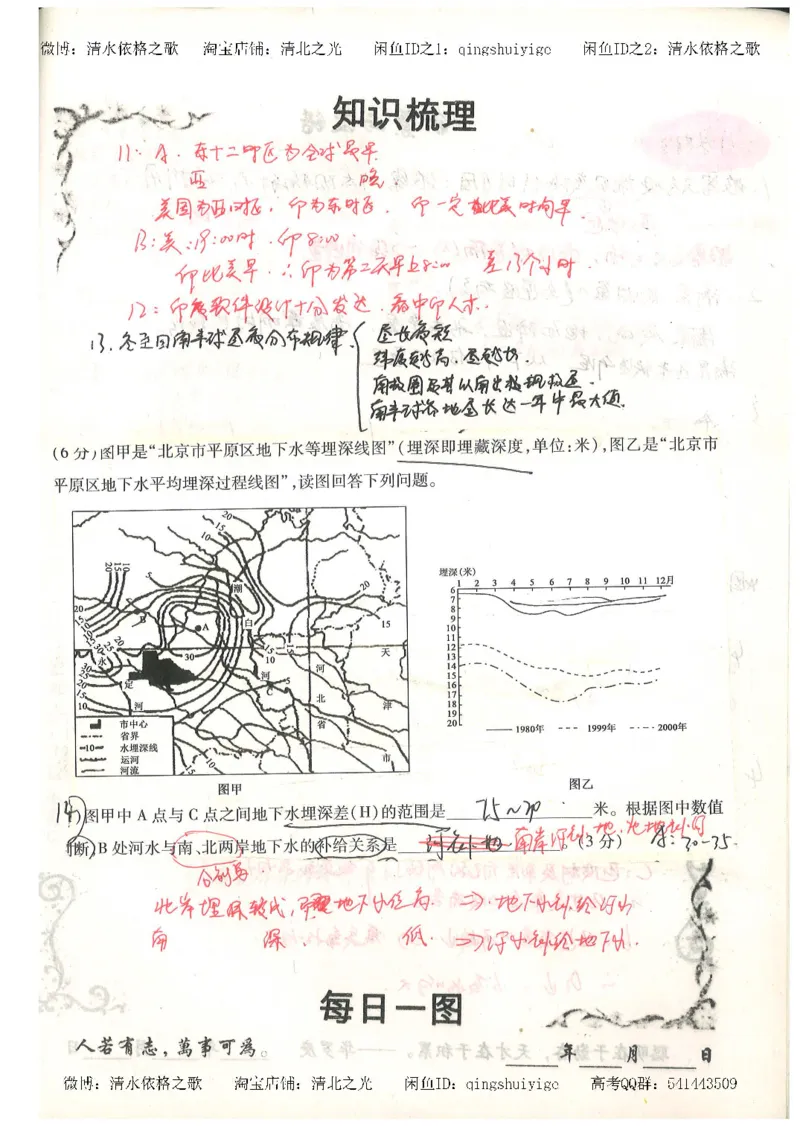 微博：清水依格之歌 淘宝店铺：清北之光 闲鱼ID之1：qingshuiyige 闲鱼ID之2：清水依格之歌
知识梳理
11: A. 东十二时区为全球最早
西 晚
美国为西时区，印为东时区. 印一定比美时间早.
B: 美:19:00时. 印8:00.
印比美早. ∴印为第二天早上8:00 差13个小时.
12: 印度软件设计十分发达.
13. 冬至日南半球昼夜分布规律
昼长夜短
纬度越高，昼越长.
南极圈及其以南出极现极昼.
南半球各地昼长达一年中最大值.
(6分)图甲是“北京市平原区地下水等埋深线图”(埋深即埋藏深度,单位:米),图乙是“北京市
平原区地下水平均埋深过程线图”,读图回答下列问题。
20
15
10
5
潮
白
河
A
B
C
30
永
定
河
河
北
省
天
津
市
15
20
市中心
省界
—10— 水埋深线
运河
河流
图甲
埋深(米)
1 2 3 4 5 6 7 8 9 10 11 12月
6
7
8
9
10
11
12
13
14
15
16
17
18
19
20
1980年 1999年 2000年
图乙
14 图甲中A点与C点之间地下水埋深差(H)的范围是 25~30 米。根据图中数值
判断,B处河水与南、北两岸地下水的补给关系是 (3分) A:30-35.
南岸河补地，北地补河
分别写
北岸埋深较浅，地下水位高 ⇒ 地下水补给河水
南 深. 低. ⇒河水补给地下水.
每日一图
人若有志，萬事可為。
年 月 日
微博：清水依格之歌 淘宝店铺：清北之光 闲鱼ID：qingshuiyige 高考QQ群：541443509